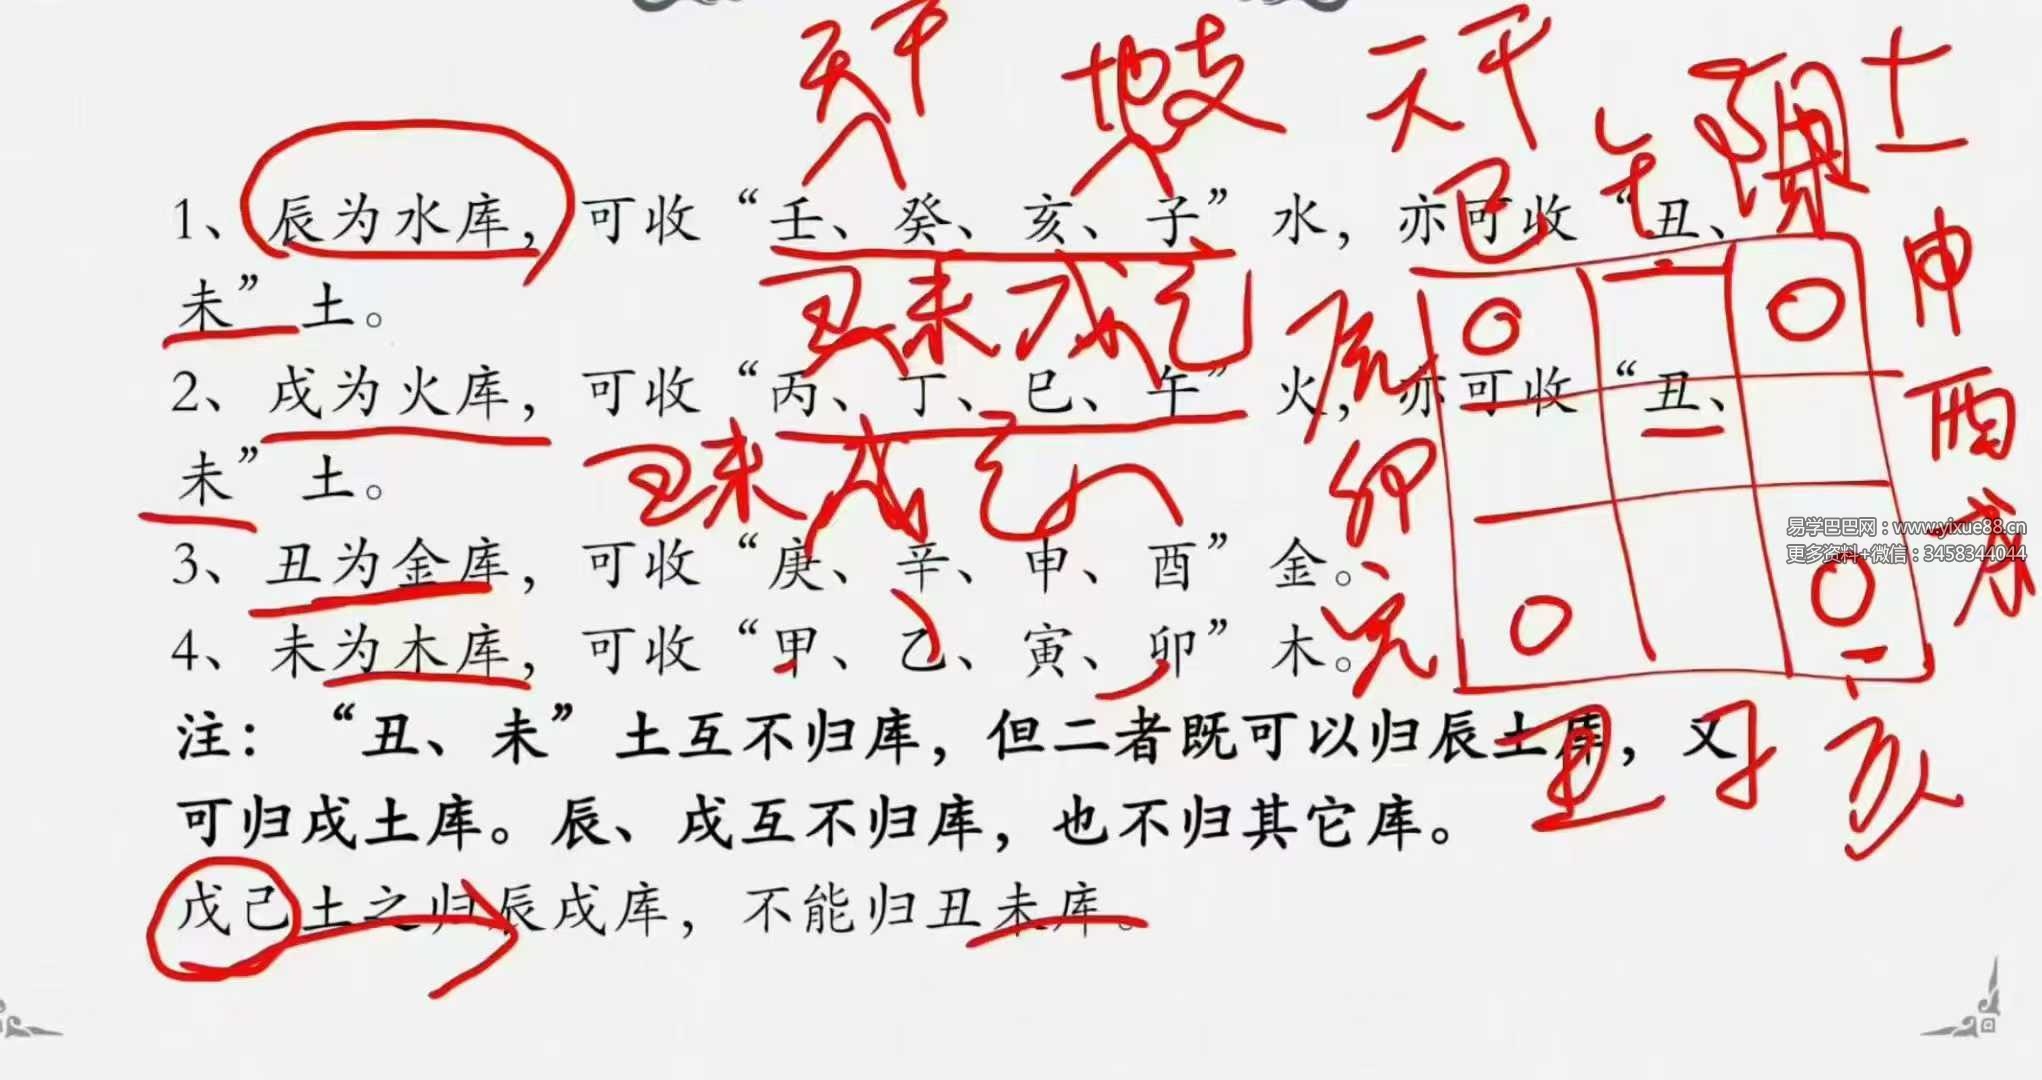 天干 地支 天干 土
1、辰为水库，可收“壬、癸、亥、子”水，亦可收“丑、
未”土。
丑未戊己
2、戌为火库，可收“丙、丁、巳、午”火，亦可收“丑、
未”土。
丑未戊己
3、丑为金库，可收“庚、辛、申、酉”金。
4、未为木库，可收“甲、乙、寅、卯”木。
注：“丑、未”土互不归库，但二者既可以归辰土库，又
可归戌土库。辰、戌互不归库，也不归其它库。
戊己土之归辰戌库，不能归丑未库。
巳
午
申
酉
戌
辰
卯
寅
丑 子 亥
易学巴巴网：www.yixue88.cn
更多资料+微信：3458344044